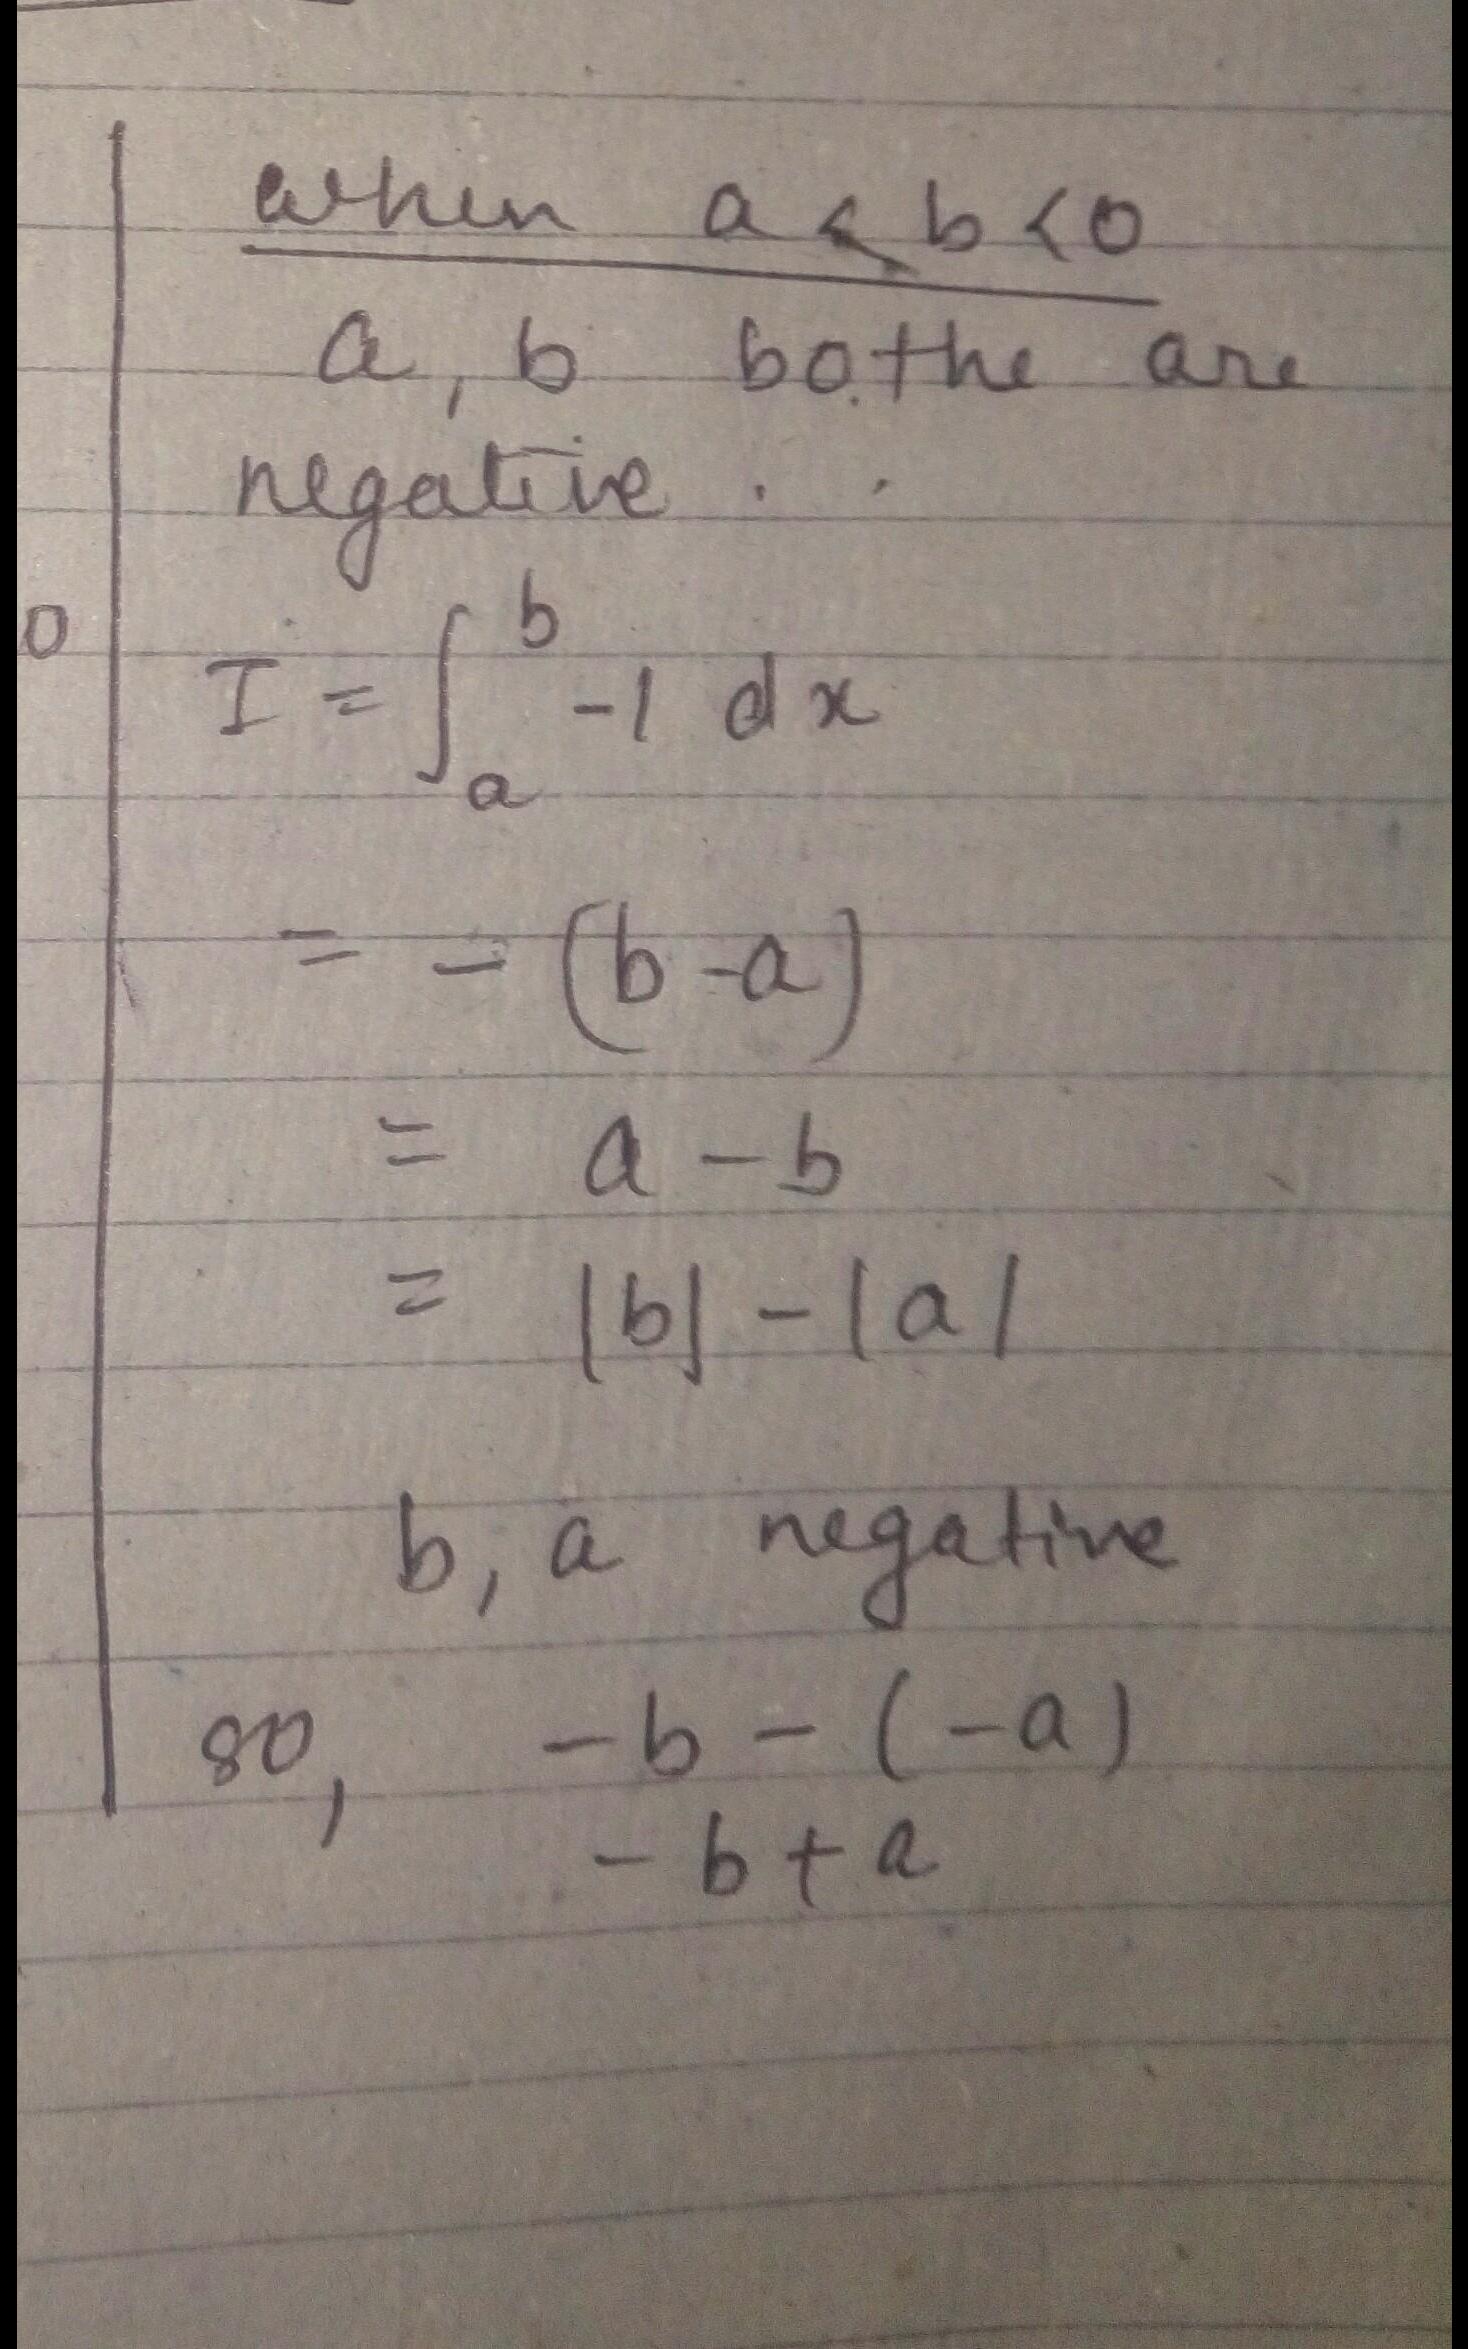 when a < b < 0
a, b bothe are
negative .
0
I = ∫_a^b -1 dx
= - (b-a)
= a - b
= |b| - |a|
b, a negative
so, -b - (-a)
-b + a